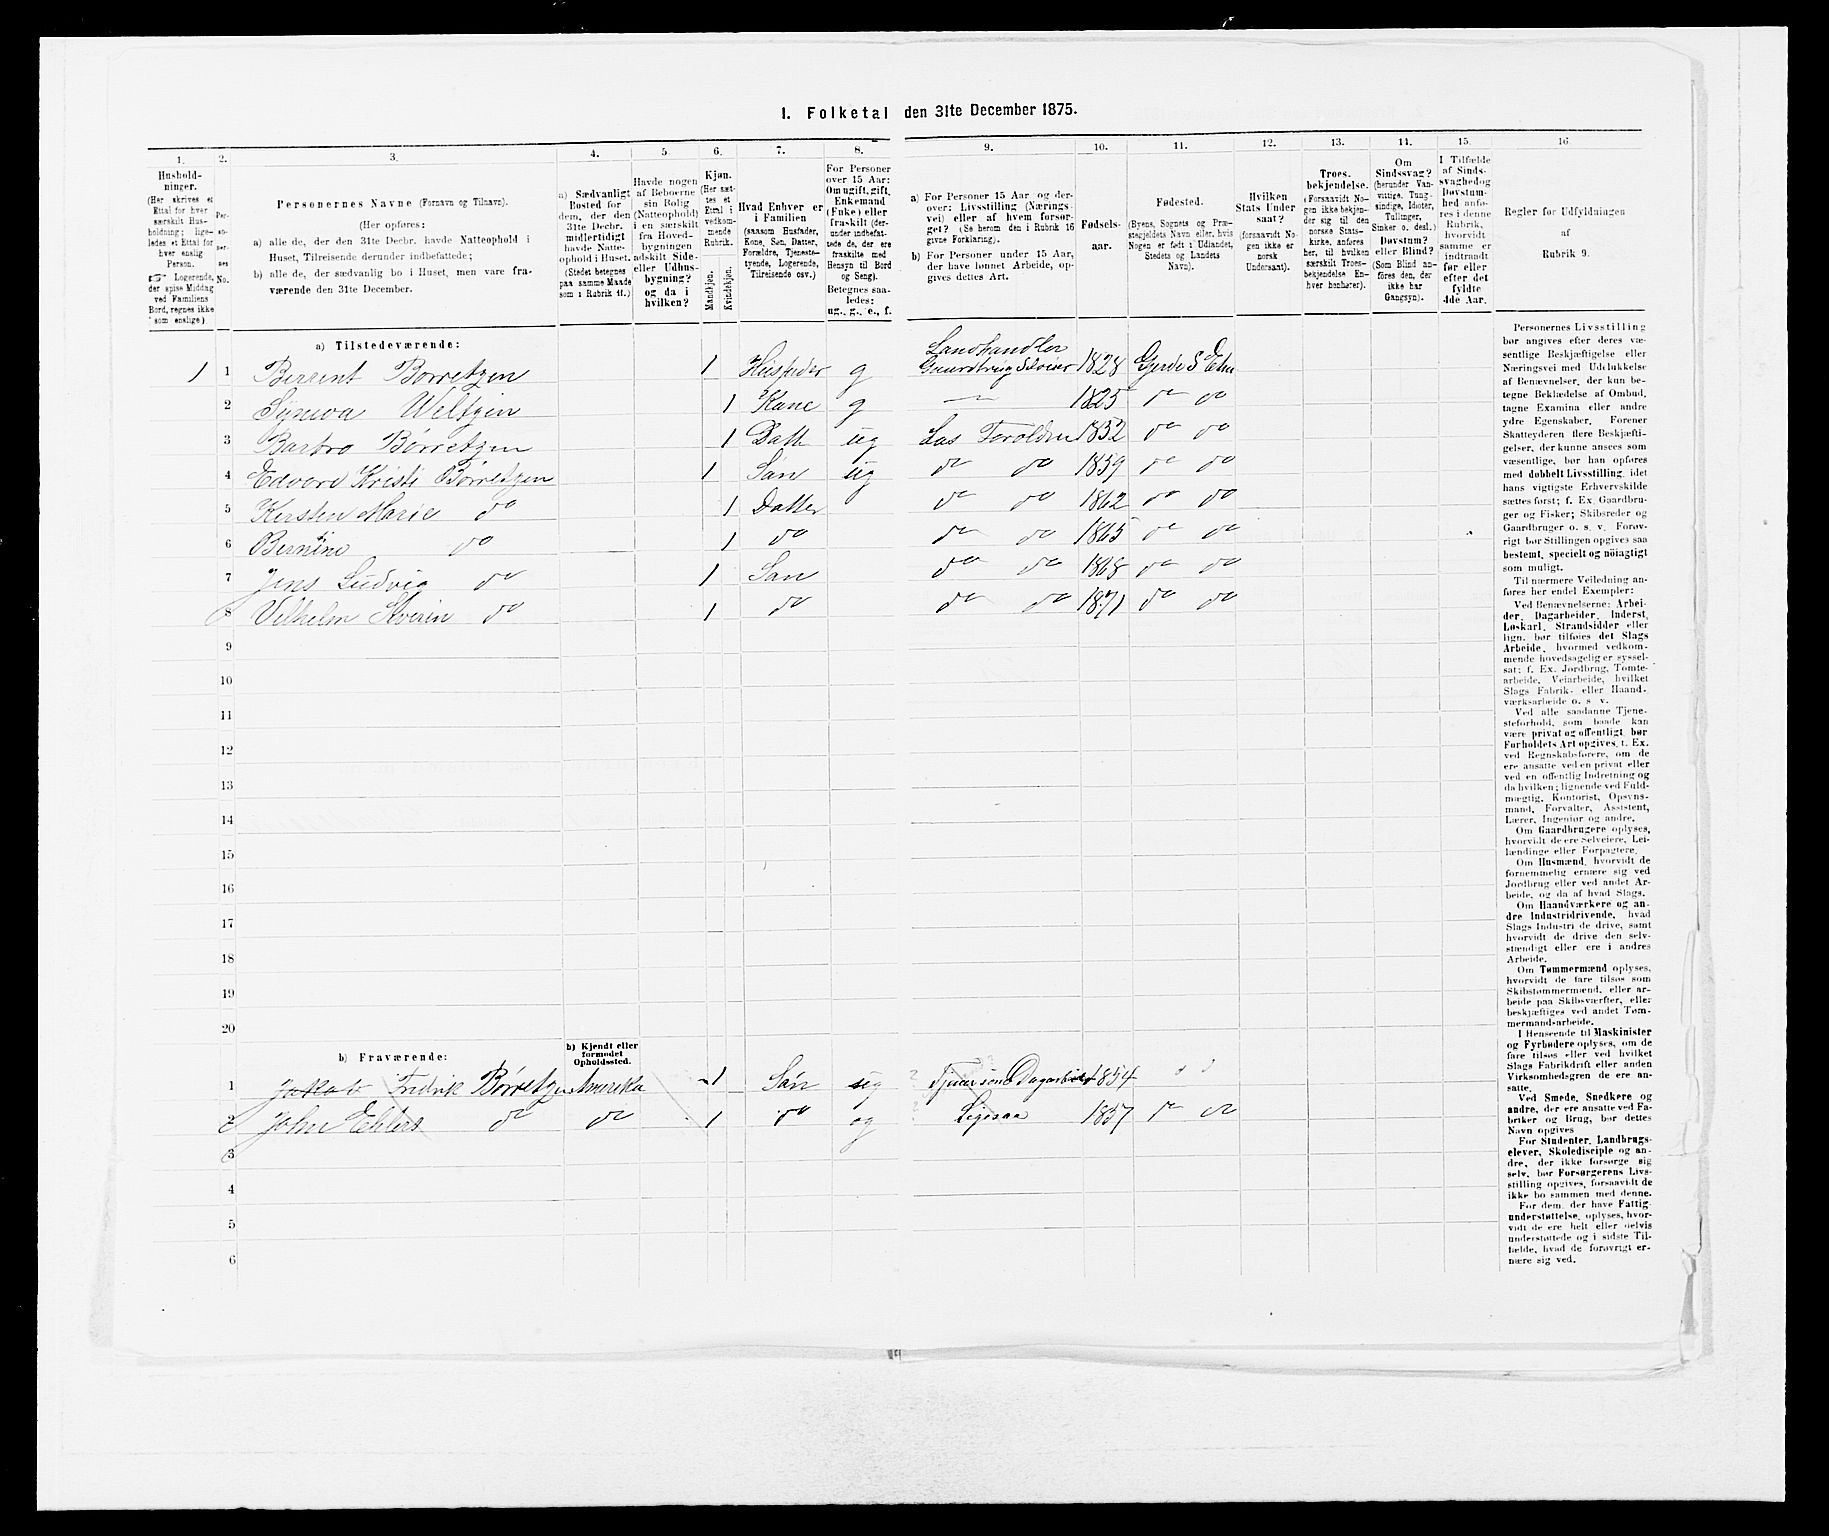 I. Folketal den 31te December 1875.
1. 2. 3. 4. 5. 6. 7. 8. 9. 10. 11. 12. 13. 14. 15. 16.
Hushold-
ninger.
(Her skrives et
Ettal for hver
særskilt Hus-
holdning; lige-
ledes et Ettal for
hver enslig
Person.
☞ Logerende,
der spise Middag
ved Familiens
Bord, regnes ikke
som enslige)
Per-
so-
ner-
nes
No.
Personernes Navne (Fornavn og Tilnavn).
(Her opføres:
a) alle de, der den 31te Decbr. havde Natteophold i
Huset, Tilreisende derunder indbefattede;
b) alle de, der sædvanlig bo i Huset, men vare fra-
værende den 31te December.
a) Sædvanligt
Bosted for
dem, der den
31te Decbr.
midlertidigt
havde Natte-
ophold i Huset.
(Stedet betegnes
paa samme Maade
som i Rubrik 11.)
Havde nogen
af Beboerne
sin Bolig
(Natteophold)
i en særskilt
fra Hoved-
bygningen
adskilt Side-
eller Udhus-
bygning?
og da i
hvilken?
Kjøn.
(Her sæt-
tes et
Ettal i
vedkom-
mende
Rubrik.
Mandkjøn.
Kvindkjøn.
Hvad Enhver er
i Familien
(saasom Husfader,
Kone, Søn, Datter,
Forældre, Tjeneste-
tyende, Logerende,
Tilreisende osv.)
For Personer
over 15 Aar:
Om ugift, gift,
Enkemand
(Enke) eller
fraskilt (der-
under indbefat-
tede de, der ere
fraskilte med
Hensyn til Bord
og Seng).
Betegnes saa-
ledes:
ug., g., e., f.
a) For Personer 15 Aar og der-
over: Livsstilling (Nærings-
vei) eller af hvem forsør-
get? (Se herom den i Rubrik 16
givne Forklaring).
b) For Personer under 15 Aar,
der have lønnet Arbeide, op-
gives dettes Art.
Fødsels-
aar.
Fødested.
(Byens, Sognets og Præ-
stegjeldets Navn eller, hvis
Nogen er født i Udlandet,
Stedets og Landets
Navn).
Hvilken
Stats Under
saat?
(forsaavidt No-
gen ikke er
norsk
Undersaat).
Troes-
bekjendelse.
(Forsaavidt No-
gen ikke bekjen-
der sig til den
norske Stats-
kirke, anføres
her, til hvilken
særskilt Troes-
bekjendelse En-
hver henhører).
Om
Sindssvag?
(herunder Van-
vittige, Tung-
sindige, Idioter,
Tullinger,
Sinker o. desl.)
Døvstum?
eller Blind?
(Som Blind an-
føres den, der
ikke har
Gangsyn).
I Tilfælde
af Sinds-
svaghed og
Døvstum-
hed anfø-
res i denne
Rubrik,
hvorvidt
samme er
indtraadt
før eller
efter det
fyldte
4de Aar.
Regler før Udfyldningen
af
Rubrik 9.
a) Tilstedeværende:
Landhandler
1 1 Berrent Borretzen 1 Husfader g Gaardbrug Selveier 1828 Gjerde S Etne
2 Synneva Weltzin 1 Kone g — 1825 do do
3 Barbro Børretzen 1 Datt ug Las Foroldre 1852 do do
4 Edvard Kristi Børretzen 1 Søn ug do do 1859 do do
5 Kirsten Marie do 1 Datter do do 1862 do do
6 Berntine do 1 do do do 1865 do do
7 Jens Ludvig do 1 Søn do do 1868 do do
8 Vilhelm Severin do 1 do do do 1871 do do
9
10
11
12
13
14
15
16
17
18
19
20
b) Fraværende:
b) Kjendt eller
formodet
Opholdssted.
1 Jakob Fredrik Børretzen Amerika 1 Søn ug Tjener som Dagarbeider 1854
2 John Ehlers do do 1 do ug Ligesaa 1857 do do
3
4
5
6
Personernes Livsstilling
bør angives efter deres væ-
sentlige Beskjæftigelse eller
Næringsvei med Udelukkelse
af Benævnelser, der kun be-
tegne Beklædelse af Ombud,
tagne Examina eller andre
ydre Egenskaber. Forener
Skatteyderen flere Beskjæfti-
gelser, der kunne ansees som
væsentlige, bør han opføres
med dobbelt Livsstilling, idet
hans vigtigste Erhvervskilde
sættes først; f. Ex. Gaardbru-
ger og Fisker; Skibsreder og
Gaardbruger o. s. v. Forøv-
rigt bør Stillingen opgives saa
bestemt, specielt og nöiagtigt
som muligt.
Til nærmere Veiledning an-
føres her endel Exempler:
Ved Benævnelserne: Arbei-
der, Dagarbeider, Inderst,
Løskarl, Strandsidder eller
lign. bør tilføies det Slags
Arbeide, hvormed vedkom-
mende hovedsagelig er syssel-
sat; f. Ex. Jordbrug, Tomte-
arbeide, Veiarbeide, hvilket
Slags Fabrik- eller Haand-
værksarbeide o. s. v.
Ved alle saadanne Tjene-
steforhold, som baade kan
være privat og offentligt, bør
Forholdets Art opgives, t. Ex.
ved Regnskabsførere, om de
ere ansatte ved en privat eller
ved en offentlig Indretning og
da hvilken; lignende ved Fuld-
mægtig, Kontorist, Opsyns-
mand, Forvalter, Assistent,
Lærer, Ingeniør og andre.
Om Gaardbrugere oplyses,
hvorvidt de ere Selveiere, Lei-
lændinge eller Forpagtere.
Om Husmænd, hvorvidt de
fornemmelig ernære sig ved
Jordbrug eller ved andet Ar-
beide, og da af hvad Slags.
Om Haandværkere og an-
dre Industridrivende, hvad
Slags Industri de drive, samt
hvorvidt de drive den selv-
stændigt eller ere i andres
Arbeide.
Om Tømmermænd oplyses,
hvorvidt de fare tilsøs som
Skibstømmermænd, eller ar-
beide paa Skibsværfter, eller
beskjæftiges ved andet Tøm-
mermandsarbeide.
I Henseende til Maskinister
og Fyrbødere oplyses, om de
fare tilsøs eller ved hvilket
Slags Fabrikdrift eller anden
Virksomhedsgren de ere an-
satte.
Ved Smede, Snedkere og
andre, der ere ansatte ved Fa-
briker og Brug, bør dettes
Navn opgives
For Studenter, Landbrugs-
elever, Skoledisciple og an-
dre, der ikke forsørge sig
selv, bør Forsørgerens Livs-
stilling opgives, forsaavidt de
ikke bo sammen med denne.
For dem, der have Fattig-
understøttelse, oplyses, hvor-
vidt de ere helt eller delvis
understøttede og i sidste Til-
fælde, hvad de forøvrigt er-
nære sig ved.